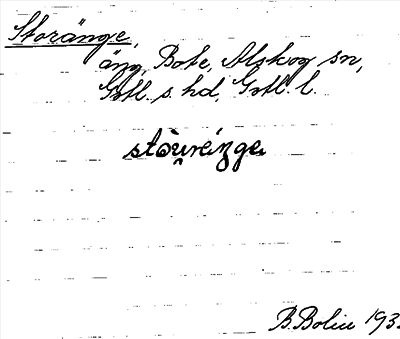 Storänge,
äng, Bote, Alskog sn,
Gotl. s. hd, Gotl. l.
stòu̯réŋge
B. Bolin 193